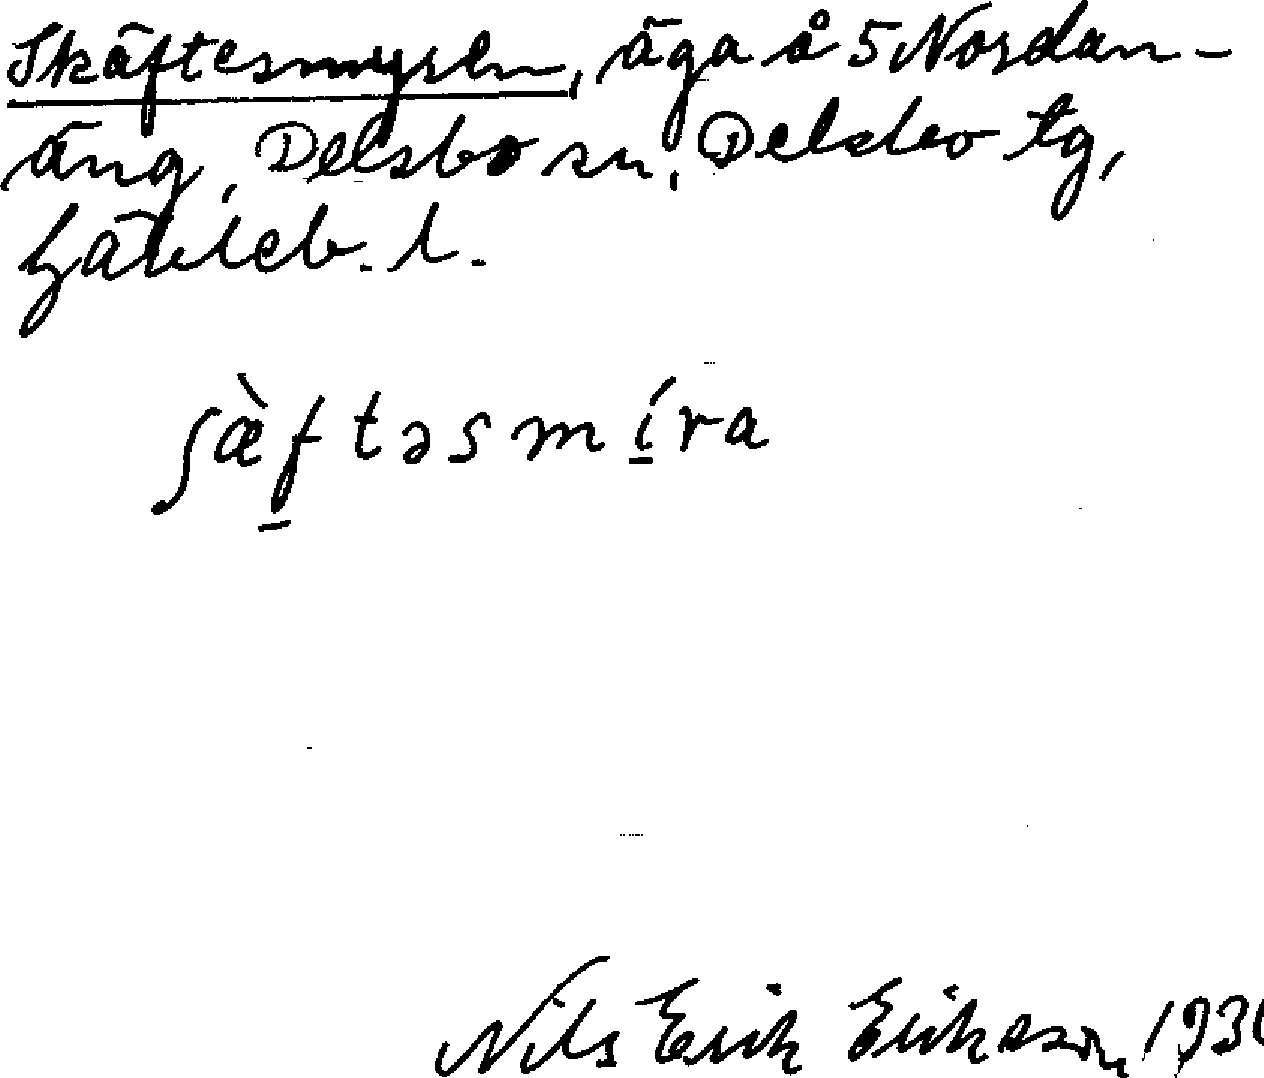 Skäftesmyren, äga å 5 Nordan-
äng, Delsbo sn, Delsbo tg,
Gävleb. l.
ʃæ̀ftəsmíra
Nils Erik Eriksson